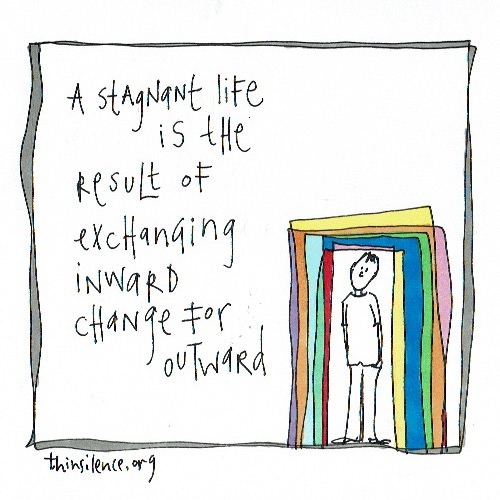 A stagnant life
is the
result of
exchanging
inward
change for
outward
thinsilence.org